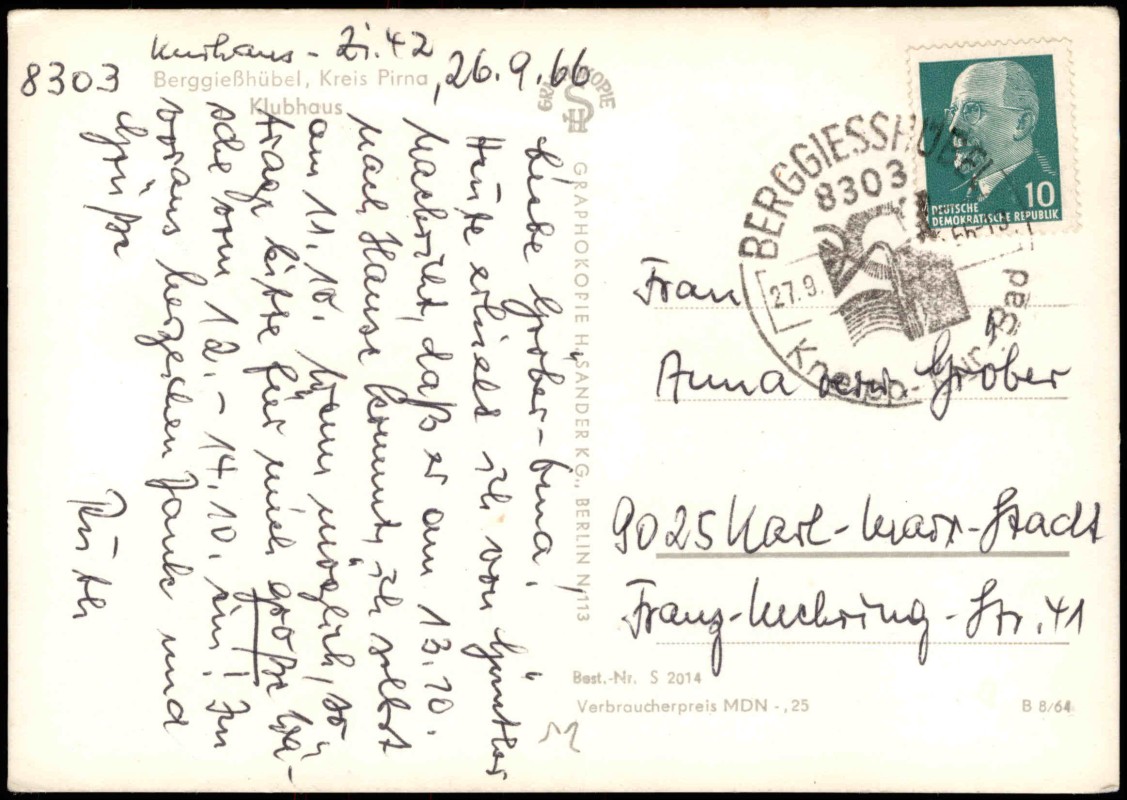 Kurhaus - Zi. 42
8303
Berggießhübel, Kreis Pirna
, 26.9.66
Klubhaus
Liebe Gröber-Anna!
Heute erhielt ich von Günther
Nachricht, daß er am 13.10.
nach Hause kommt, ich selbst
am 11.10. Wenn möglich, so
trage bitte für mich große Wä-
sche vom 12. - 14.10. ein! Im
voraus herzlichen Dank und
Grüße
Ruth
GRAPHOKOPIE H. SANDER KG., BERLIN N 113
BERGGIESSHÜBEL
8303
27.9.
Kneipp-Kur-Bad
10
DEUTSCHE
DEMOKRATISCHE REPUBLIK
Frau
Anna Gröber
9025 Karl-Marx-Stadt
Franz-Mehring-Str. 41
Best.-Nr. S 2014
Verbraucherpreis MDN -,25
B 8/64